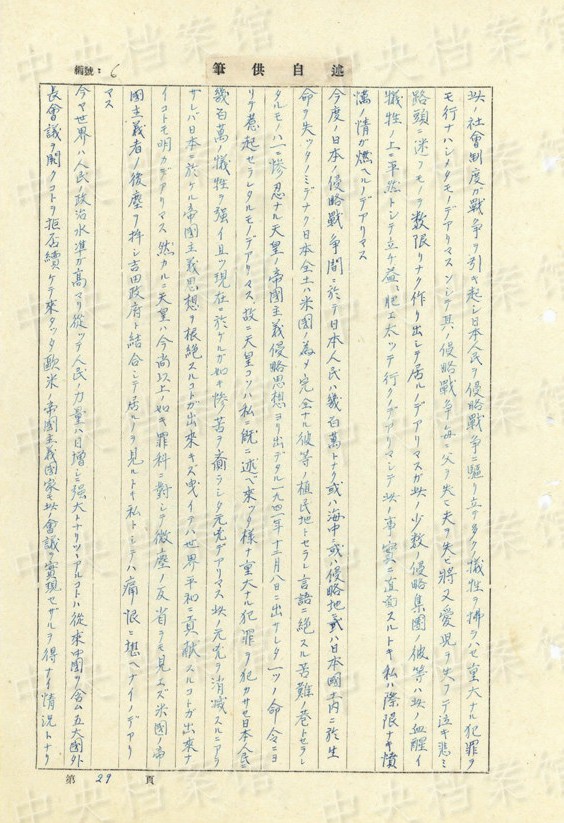 編號：6
述自供筆
此ノ社會制度ガ戰爭ヲ引キ起シ日本人民ヲ侵略戰爭ニ驅リ立テ多クノ犧牲ヲ拂ハセ重大ナル犯罪ヲ
モ行ナハシメタモノデアリマス ソシテ其ノ侵略戰爭ノ每ニ父ヲ失ヒ夫ヲ失ヒ將又愛兒ヲ失フテ泣キ悲シミ
路頭ニ迷フモノヲ數限リナク作リ出シテ居ルノデアリマスガ此ノ少數ノ侵略集團ノ彼等ハ此ノ血醒イ
犧牲ノ上ニ平然トシテ立チ益〻肥エ太ッテ行クノデアリマシテ此ノ事實ニ直面スルトキ私ハ際限ナキ憤
懣ノ情ガ燃ヘルノデアリマス
今度ノ日本ノ侵略戰爭間ニ於テ日本人民ハ幾百萬トナク或ハ海中或ハ侵略地或ハ日本國土内ニ於テ生
命ヲ失ッタノミデナク日本全土ハ米國ノ為メ完全ナル彼等ノ植民地トセラレ言語ニ絕スル苦難ノ巷トセラレ
タルモノハ一ニ惨忍ナル天皇ノ帝國主義侵略思想ヨリ出デタル一九四一年十二月八日ニ出サレタ一ツノ命令ニヨ
リテ惹起セラレタルモノデアリマス、故ニ天皇コソハ私ニ既ニ述ベ來ッタ樣ナ重大ナル犯罪ヲ犯カサセ日本人民ニ
幾百萬ノ犧牲ヲ强イ且ツ現在ニ於ケルガ如キ慘苦ヲ齎ラシタ元兇デアリマス 此ノ元兇ヲ消滅スルニアラ
ザレバ日本ニ於ケル帝國主義思想ヲ根絕スルコトガ出來キズ 曳イテハ世界平和ニ貢献スルコトガ出來ナ
イコトモ明カデアリマス 然カルニ天皇ハ今尚以上ノ如キ罪科ニ對シテ微塵ノ反省ヲモ見エズ米國ノ帝
國主義者ノ後塵ヲ拜シ吉田政府ト結合シテ居ルノヲ見ルトキ私トシテハ痛恨ニ想ヘナイノデアリ
マス
今ヤ世界ノ人民ノ政治水準ガ高マリ從ッテ人民ノ力量ハ日增シニ强大トナリツヽアルコトハ從來中國ヲ含ム五大國外
長會議ヲ開クコトヲ拒否續ケテ來タッタ歐米ノ帝國主義國家モ此ノ會議ヲ實現セザルヲ得ナイ情況トナリ
第29頁
中央档案馆